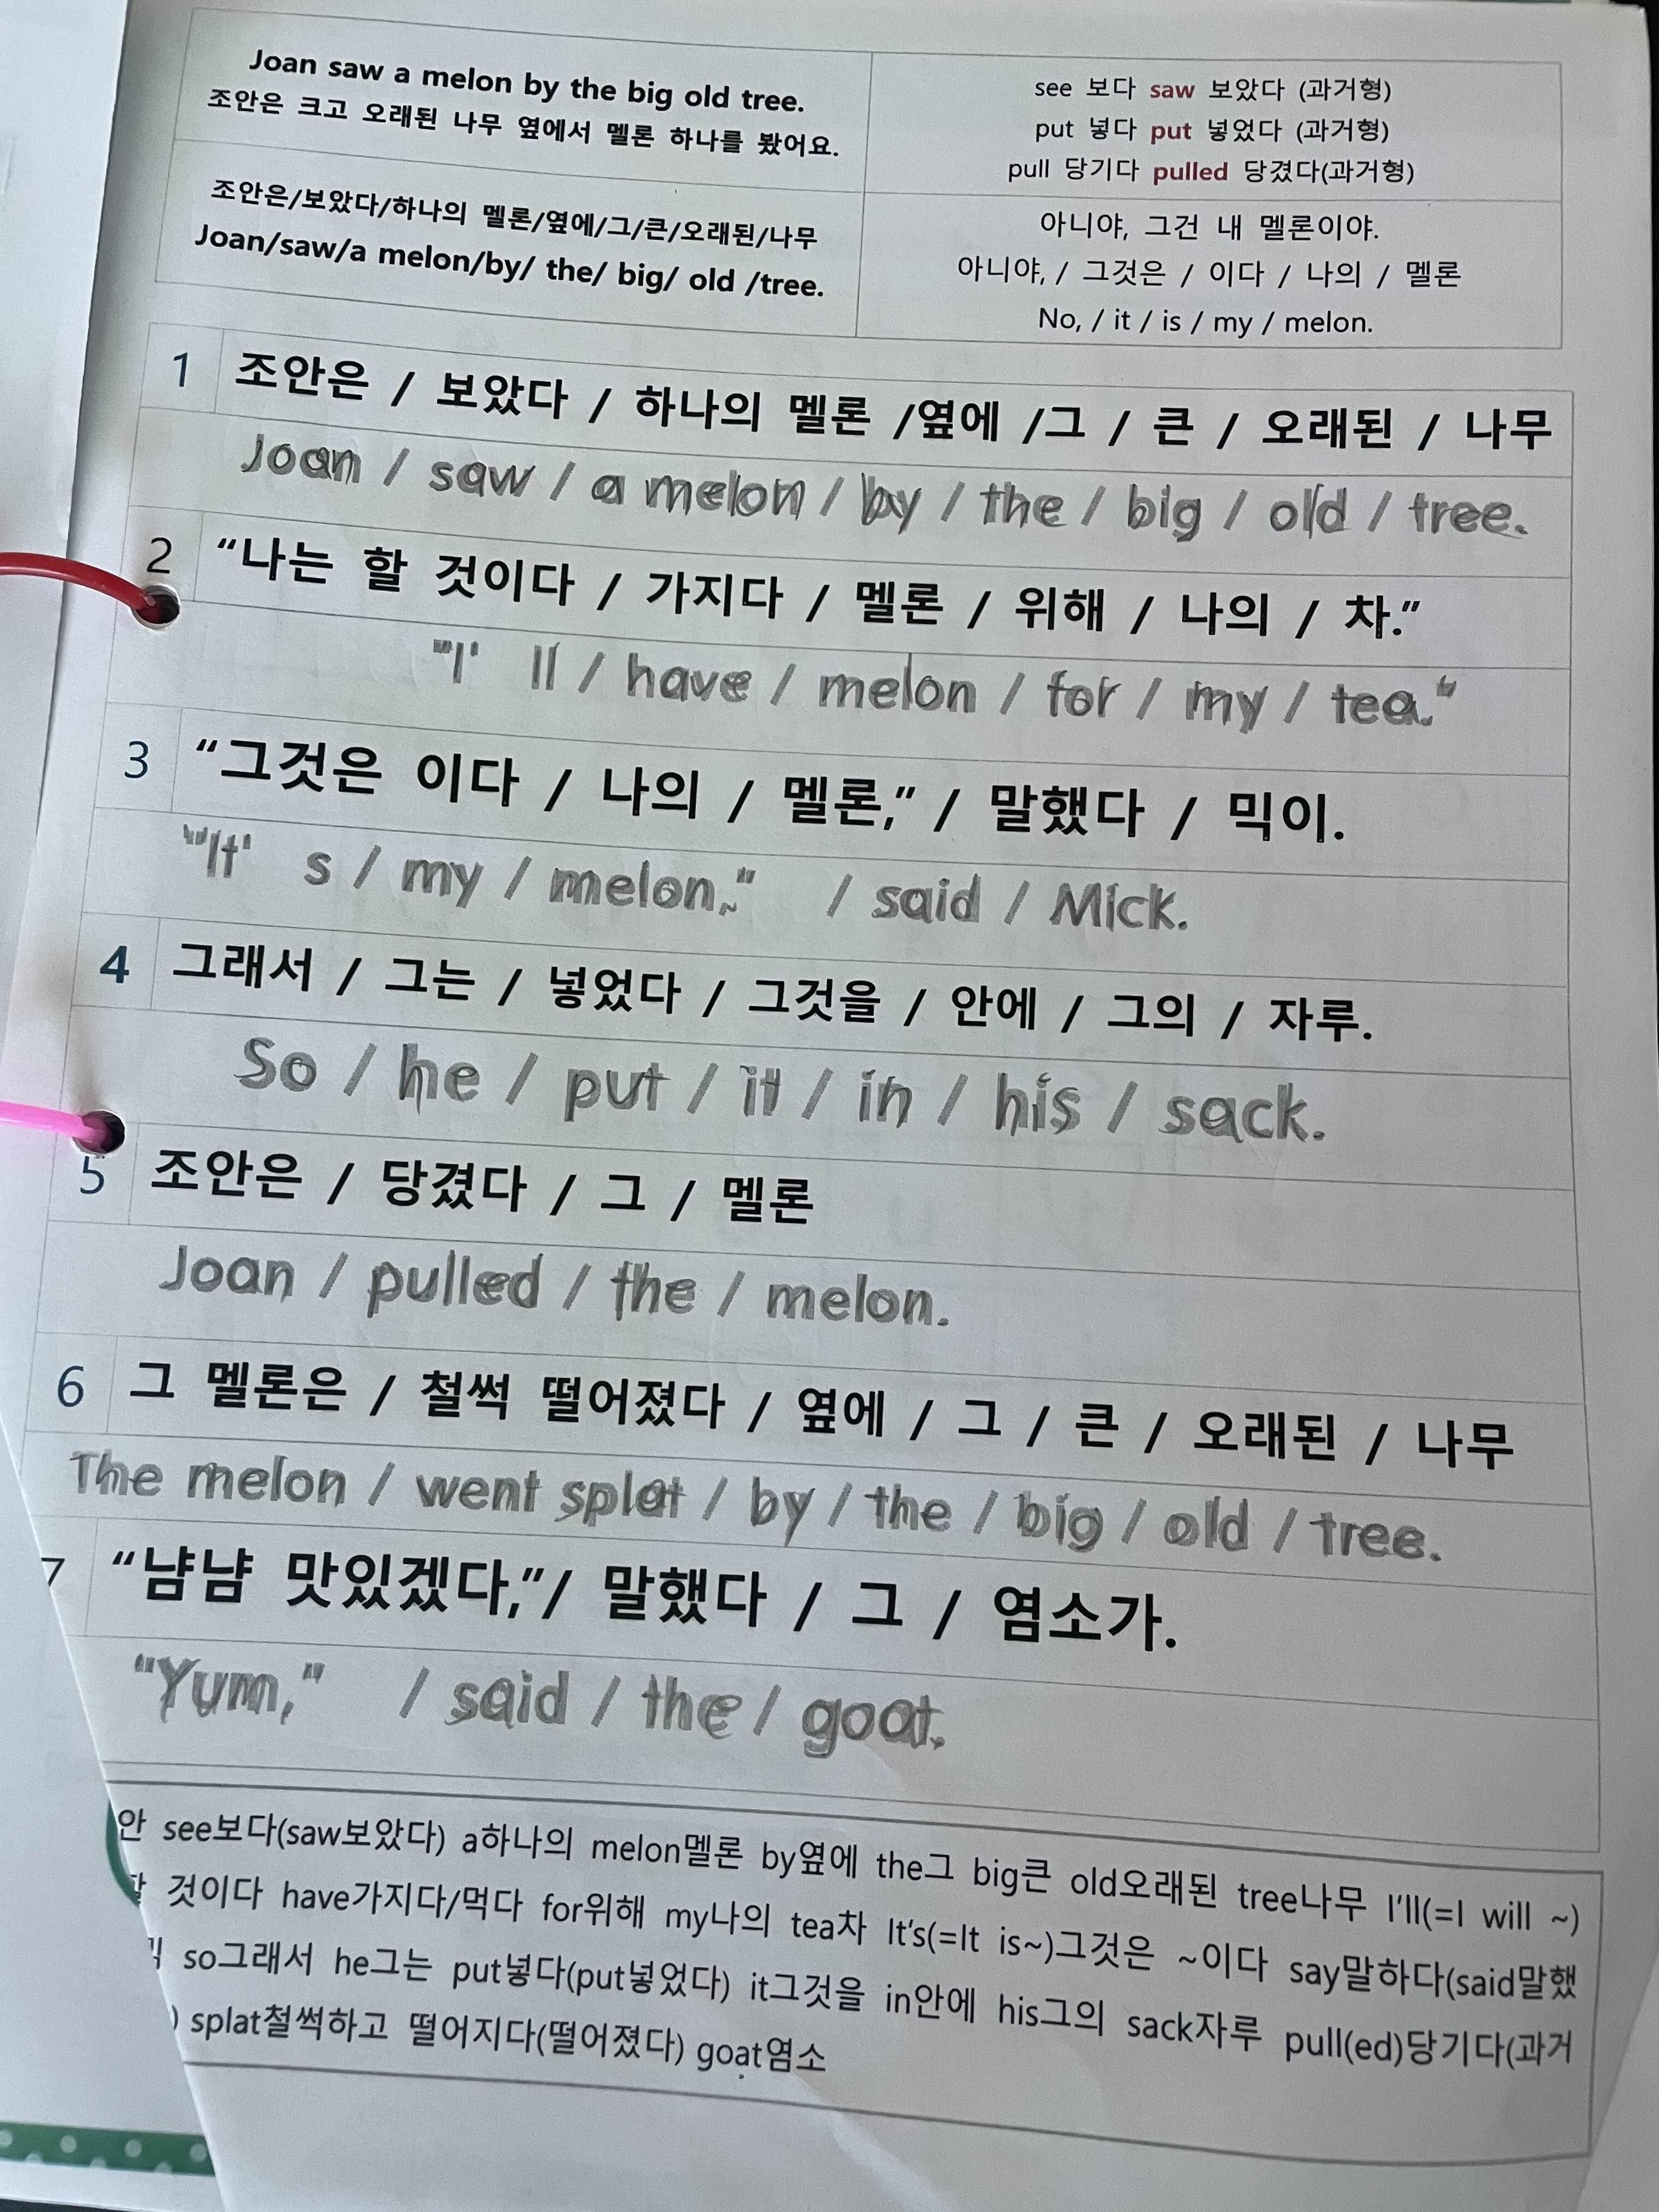 Joan saw a melon by the big old tree.
조안은 크고 오래된 나무 옆에서 멜론 하나를 봤어요.
see 보다 saw 보았다 (과거형)
put 넣다 put 넣었다 (과거형)
pull 당기다 pulled 당겼다(과거형)
조안은/보았다/하나의 멜론/옆에/그/큰/오래된/나무
Joan/saw/a melon/by/ the/ big/ old /tree.
아니야, 그건 내 멜론이야.
아니야, / 그것은 / 이다 / 나의 / 멜론
No, / it / is / my / melon.
1 조안은 / 보았다 / 하나의 멜론 /옆에 /그 / 큰 / 오래된 / 나무
Joan / saw / a melon / by / the / big / old / tree.
2 “나는 할 것이다 / 가지다 / 멜론 / 위해 / 나의 / 차.”
"I' ll / have / melon / for / my / tea."
3 “그것은 이다 / 나의 / 멜론,” / 말했다 / 믹이.
"It' s / my / melon," / said / Mick.
4 그래서 / 그는 / 넣었다 / 그것을 / 안에 / 그의 / 자루.
So / he / put / it / in / his / sack.
5 조안은 / 당겼다 / 그 / 멜론
Joan / pulled / the / melon.
6 그 멜론은 / 철썩 떨어졌다 / 옆에 / 그 / 큰 / 오래된 / 나무
The melon / went splat / by / the / big / old / tree.
7 “냠냠 맛있겠다,”/ 말했다 / 그 / 염소가.
"Yum," / said / the / goat.
안 see보다(saw보았다) a하나의 melon멜론 by옆에 the그 big큰 old오래된 tree나무 I'll(=I will ~)
것이다 have가지다/먹다 for위해 my나의 tea차 It's(=It is~)그것은 ~이다 say말하다(said말했
so그래서 he그는 put넣다(put넣었다) it그것을 in안에 his그의 sack자루 pull(ed)당기다(과거
) splat철썩하고 떨어지다(떨어졌다) goat염소